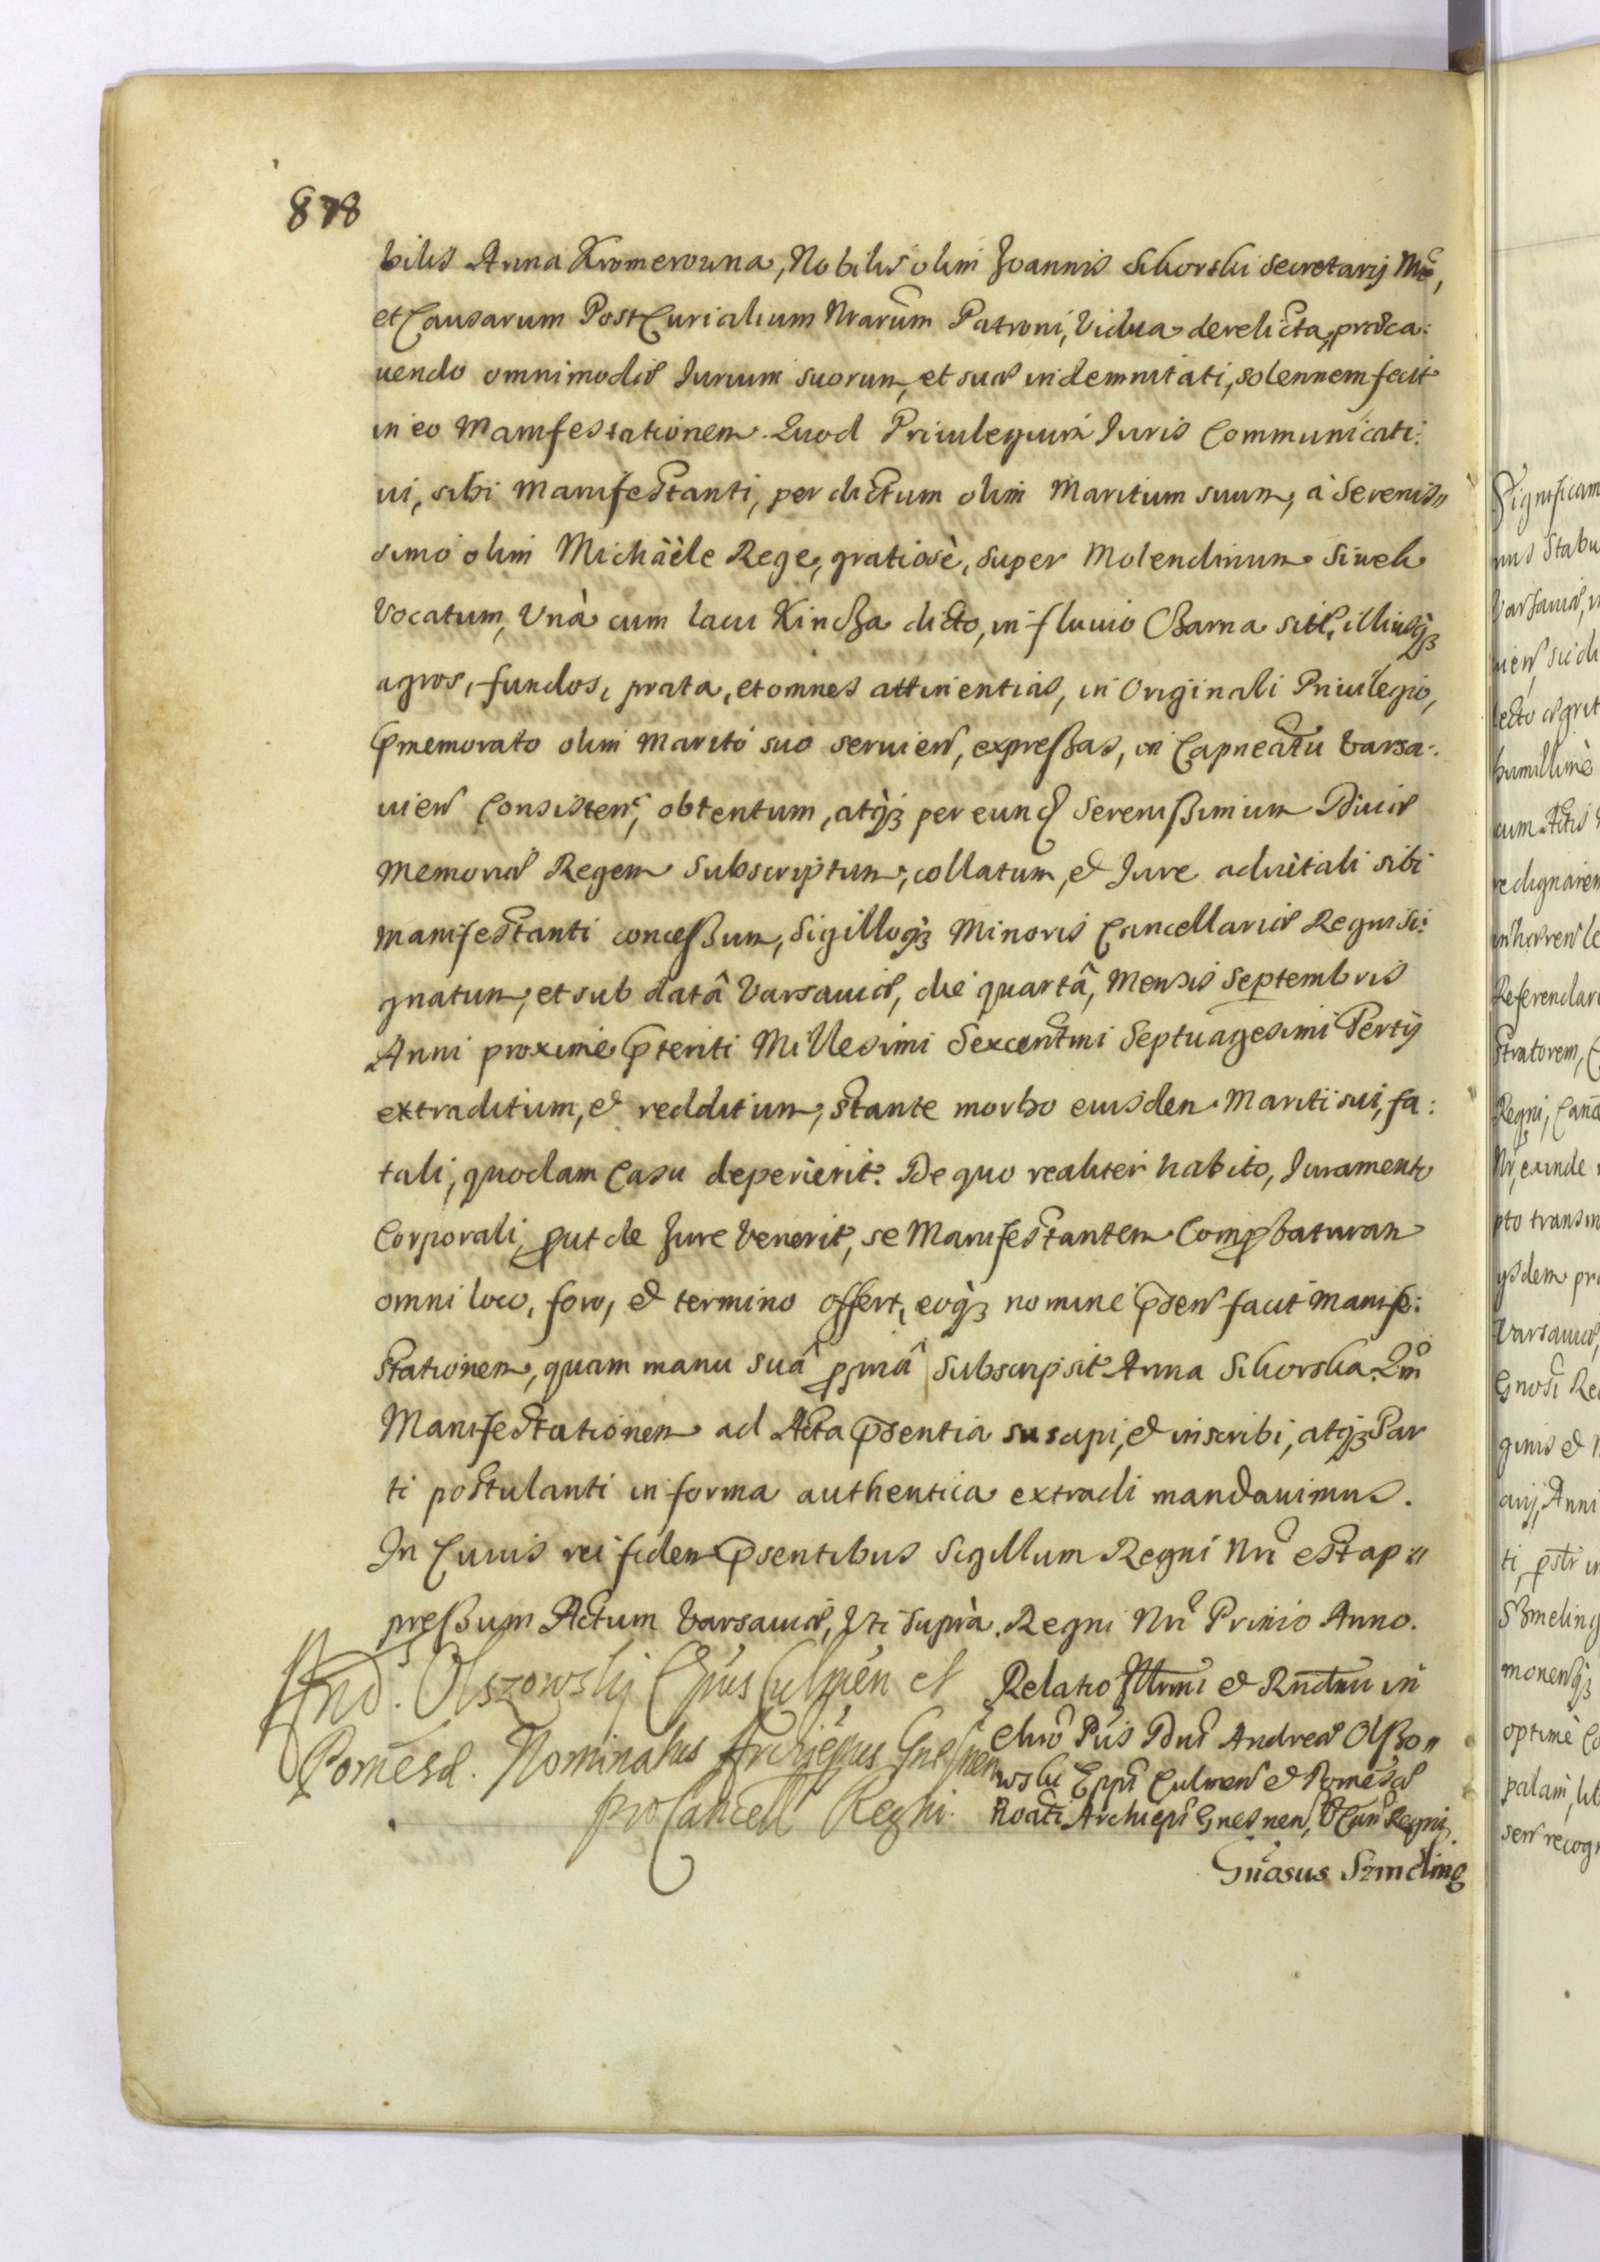 878
bilis Anna Kromerowna, Nobilis olim Joannis Sikorski Secretarij Nrĩ,
et Causarum PostCurialium Nrarum Patroni, Vidua derelicta, præca:
uendo omnimodæ Jurium suorum, et suæ indemnitati, solennem fecit
in eo Manifestationem. Quod Priuilegium Juris Communicati:
ui, sibi Manifestanti, per dictum olim Maritum suum, à Serenis„
simo olim Michäèle Rege, gratiosè, super Molendinum Siweli
Vocatum, Vnà cum lacu Kincza dicto, in fluuio Czarna siti, illiusq3
agros, fundos, prata, et omnes attinentias, in Originali Priuilegio,
p̃memorato olim Marito suo seruien, expreßas, in Capneatu Varsa:
uien Consisten, obtentum, atq3 per eund Serenißimum Diuæ
Memoriæ Regem Subscriptum, collatum, et Jure aduitali sibi
Manifestanti conceßum, Sigilloq3 Minoris Cancellariæ Regni Si:
gnatum, et sub datâ Varsauiæ, die quartâ, Mensis Septembris
Anni proximè p̃teriti Millesimi Sexcentmi Septuagesimi Tertij
extraditum, et redditum, stante morbo eiusdem Mariti sui, fa:
tali, quodam Casu deperierit. De quo realiter habito, Juramento
Corporali, put de Jure Venerit, se Manifestantem Compbaturam
omni loco, foro, et termino offert, eoq3 nomine p̃sen facit Manife:
stationem, quam manu suâ ppriâ Subscripsit Anna Sikorska. Qm̃
Manifestationem ad Acta p̃sentia suscipi, et inscribi, atq3 Par
ti postulanti in forma authentica extradi mandauimus.
In Cuius rei fidem p̃sentibus Sigillum Regni Nrĩ est ap„
preßum Actum Varsauiæ, Vti Suprà. Regni Nrĩ Primo Anno.
And. Olszowskj Epũs Culmen et
Pomesa. Nominatus Archiepus Gnesnen
proCancell Regni.
Relatio Illrmi et Rndmi in
Chrõ Pris Dni Andreæ Olßo„
wski Eppi Culmen et Pomesæ
Noati Archiepi Gnesnen, VCan Regni.
Gñosus Szmeling